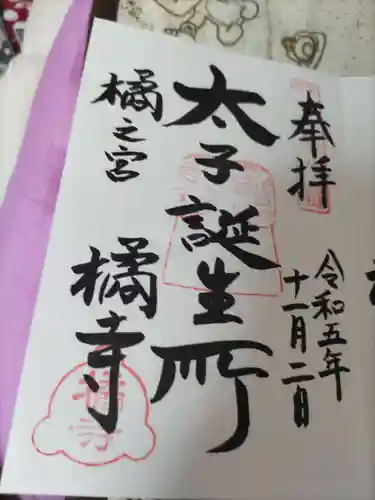 奉拝
令和五年
十一月二日
太子誕生所
橘之宮
橘寺
橘寺